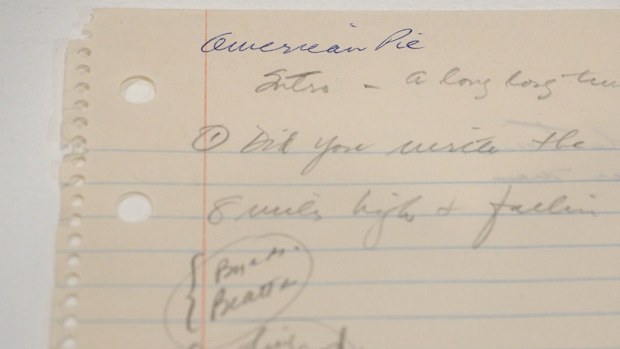 American Pie
Intro - a long long
① Did you write the
8 miles high + fallin
Byrds.
Beatles